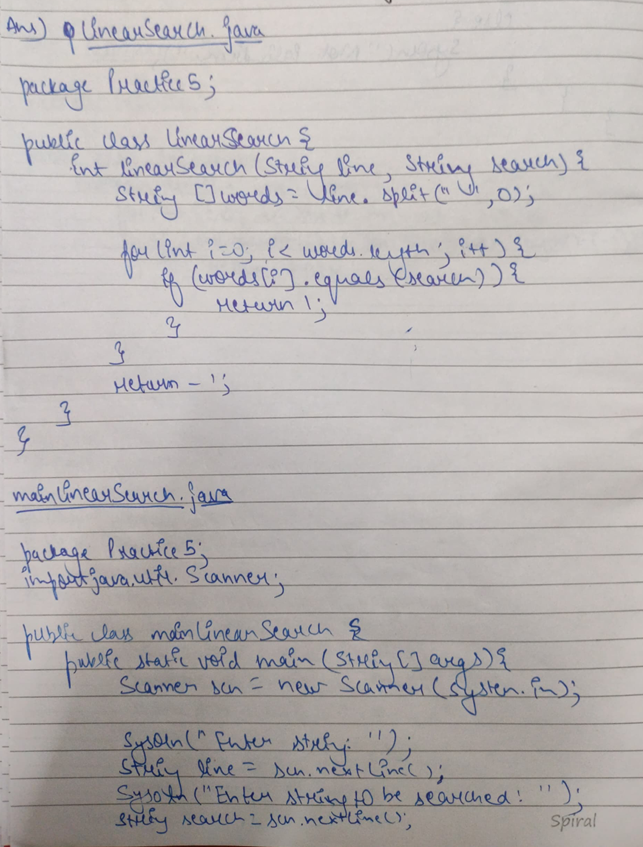 Ans) LinearSearch.java
package Practice5;
public class LinearSearch {
int linearSearch (String line, String search) {
String [] words = line.split(" ", 0);
for (int i=0; i< words.length ; i++) {
if (words[i].equals (search)) {
return i;
}
}
return -1;
}
}
mainLinearSearch.java
package Practice5;
import java.util.Scanner;
public class mainLinearSearch {
public static void main (String[] args) {
Scanner scn = new Scanner (System.in);
Sysoln(" Enter string: ");
String line = scn.nextLine();
Sysoln("Enter string to be searched: ");
String search = scn.nextLine();
Spiral